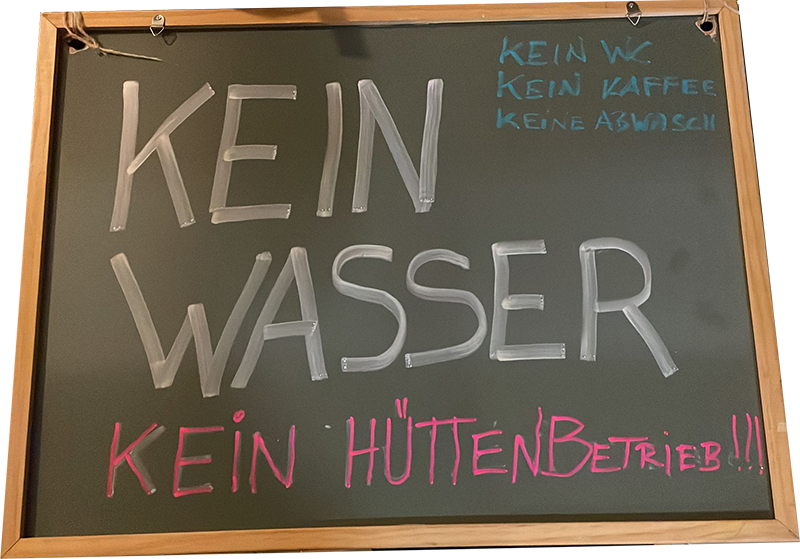 KEIN WC
KEIN KAFFEE
KEINE ABWASCH
KEIN
WASSER
KEIN HÜTTENBETRIEB!!!